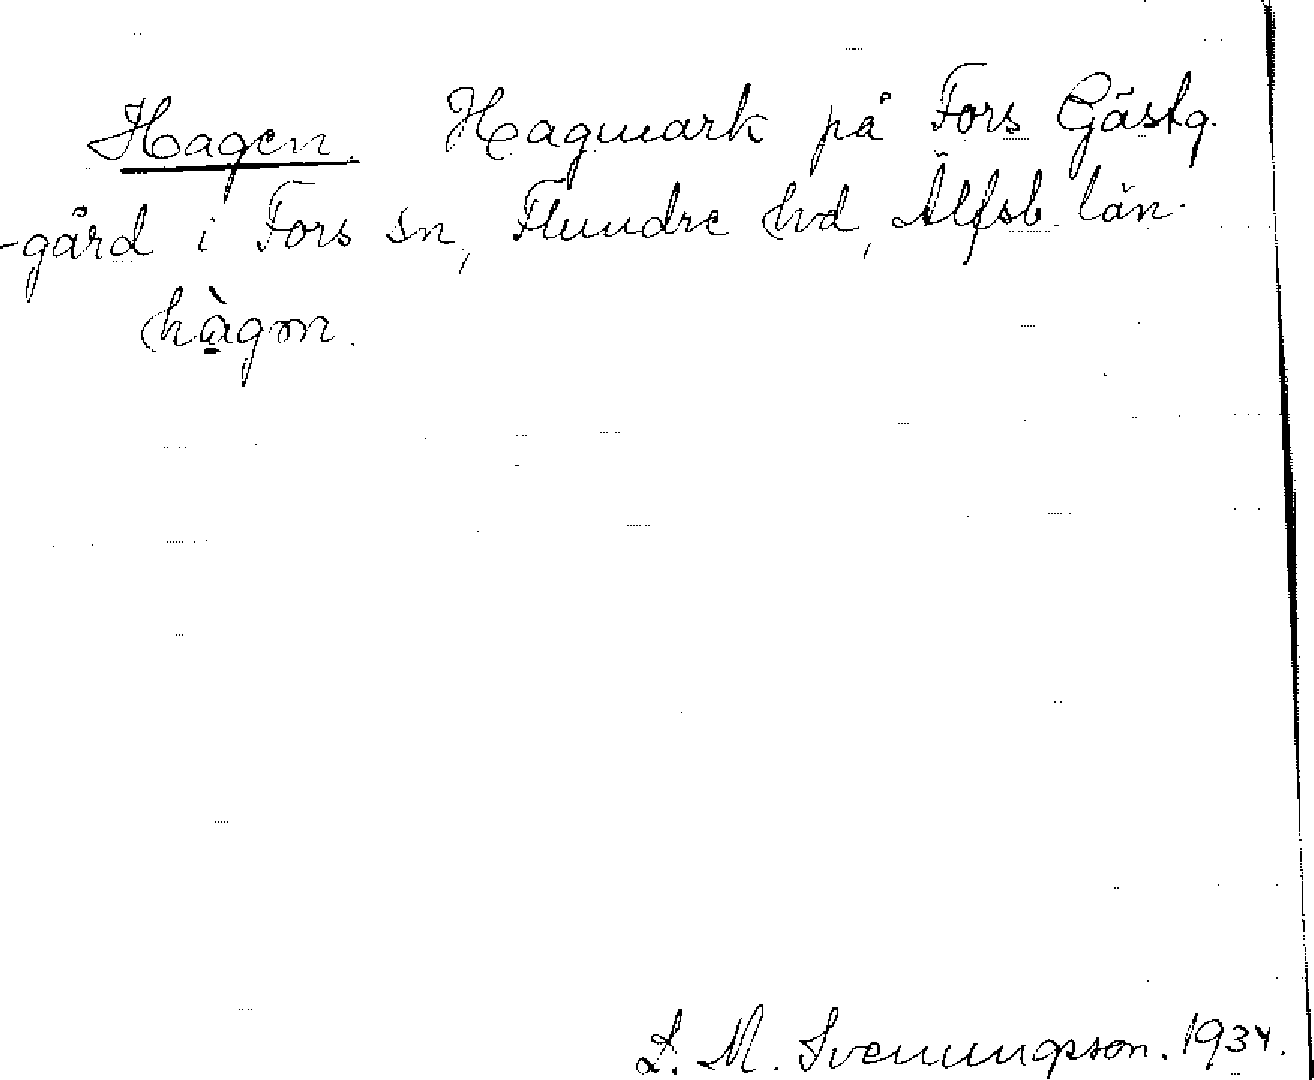 Hagen. Hagmark på Fors Gästg.
-gård i Fors sn, Flundre hd, Älfsb län.
hàgon.
D. M. Svenungsson. 1934.